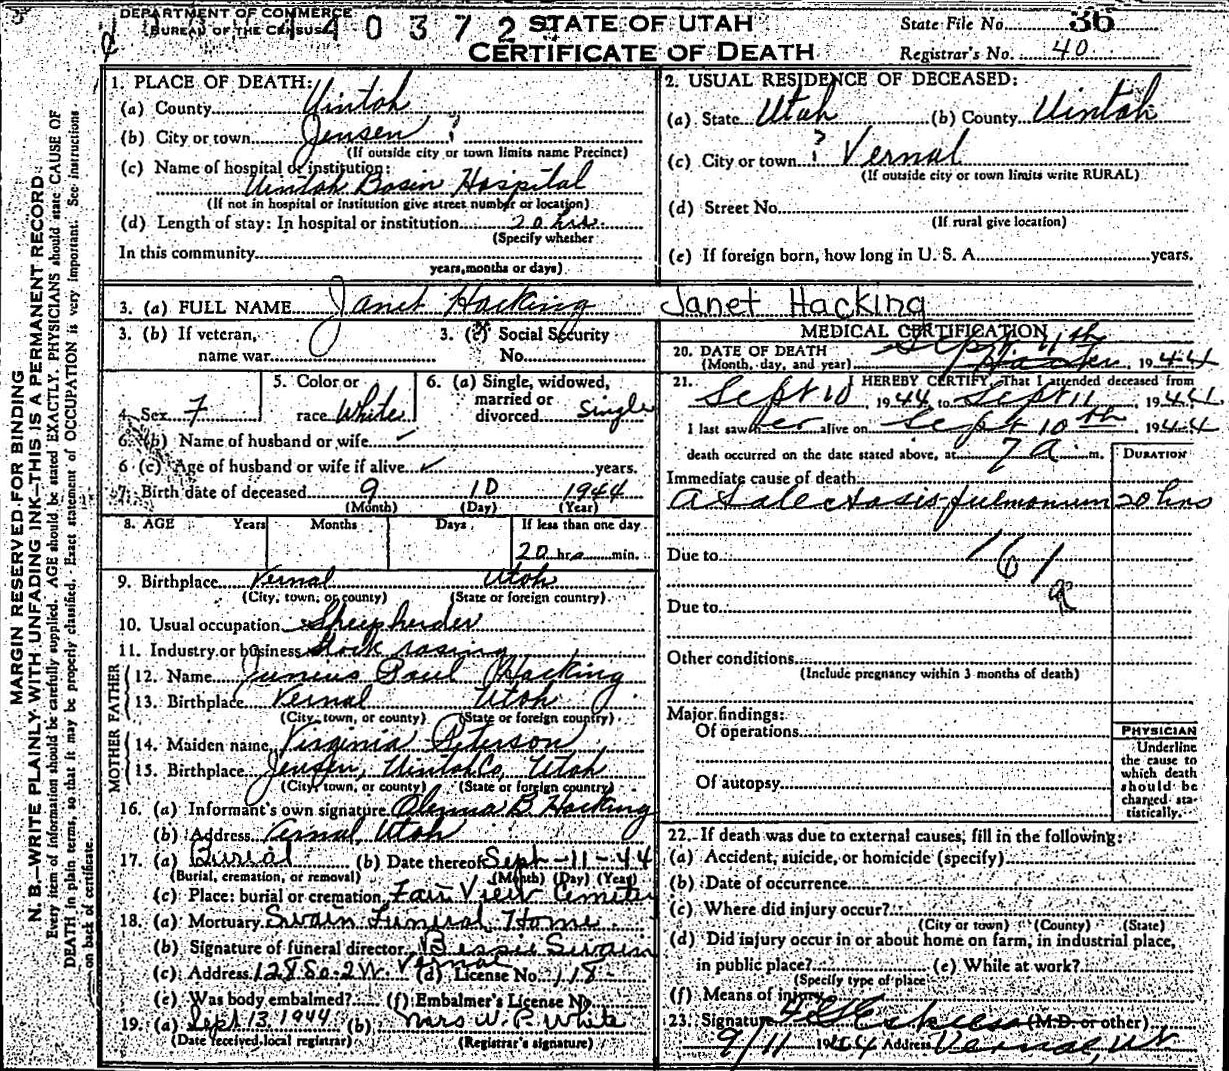 DEPARTMENT OF COMMERCE
BUREAU OF THE CENSUS
40372
STATE OF UTAH
CERTIFICATE OF DEATH
State File No. 36
Registrar's No. 40
MARGIN RESERVED FOR BINDING
N. B.—WRITE PLAINLY, WITH UNFADING INK—THIS IS A PERMANENT RECORD.
Every item of information should be carefully supplied. AGE should be stated EXACTLY. PHYSICIANS should state CAUSE OF
DEATH in plain terms, so that it may be properly classified. Exact statement of OCCUPATION is very important. See instructions
on back of certificate.
1. PLACE OF DEATH:
(a) County Uintah
(b) City or town Jensen ?
(If outside city or town limits name Precinct)
(c) Name of hospital or institution:
Uintah Basin Hospital
(If not in hospital or institution give street number or location)
(d) Length of stay: In hospital or institution 20 hrs.
(Specify whether
In this community
years, months or days)
2. USUAL RESIDENCE OF DECEASED:
(a) State Utah (b) County Uintah
(c) City or town ? Vernal
(If outside city or town limits write RURAL)
(d) Street No.
(If rural give location)
(e) If foreign born, how long in U. S. A. years.
3. (a) FULL NAME Janet Hacking Janet Hacking
3. (b) If veteran,
name war
3. (c) Social Security
No.
4. Sex F
5. Color or
race White
6. (a) Single, widowed,
married or
divorced Single
6. (b) Name of husband or wife
6 (c) Age of husband or wife if alive years.
7. Birth date of deceased 9 10 1944
(Month) (Day) (Year)
8. AGE Years Months Days If less than one day
20 hrs. min.
9. Birthplace Vernal Utah
(City, town, or county) (State or foreign country)
10. Usual occupation Sheepherder
11. Industry or business Stock rasing
FATHER
12. Name Junius Paul Hacking
13. Birthplace Vernal Utah
(City, town, or county) (State or foreign country)
MOTHER
14. Maiden name Virginia Peterson
15. Birthplace Jensen, Uintah Co, Utah
(City, town, or county) (State or foreign country)
16. (a) Informant's own signature B. Hacking
(b) Address Vernal, Utah
17. (a) Burial (b) Date thereof Sept-11-44
(Burial, cremation, or removal) (Month) (Day) (Year)
(c) Place: burial or cremation Fair View Cemete
18. (a) Mortuary Swain Funeral Home
(b) Signature of funeral director Bessie Swain
(c) Address 128 So. 2 W. Vernal (d) License No. 118
(e) Was body embalmed? (f) Embalmer's License No.
19. (a) Sept 13, 1944 (b) Mrs W. P. White
(Date received local registrar) (Registrar's signature)
MEDICAL CERTIFICATION
20. DATE OF DEATH Sept 11th
(Month, day, and year) 1944
21. I HEREBY CERTIFY, That I attended deceased from
Sept 10, 1944 to Sept 11, 1944
I last saw her alive on Sept 10th 1944
death occurred on the date stated above, at 7 a. m.
DURATION
Immediate cause of death
Atalectasis pulmonum 20 hrs
Due to 161
a
Due to
Other conditions
(Include pregnancy within 3 months of death)
Major findings:
Of operations
Of autopsy
PHYSICIAN
Underline
the cause to
which death
should be
charged sta-
tistically.
22. If death was due to external causes, fill in the following:
(a) Accident, suicide, or homicide (specify)
(b) Date of occurrence
(c) Where did injury occur?
(City or town) (County) (State)
(d) Did injury occur in or about home on farm, in industrial place,
in public place? (e) While at work?
(Specify type of place)
(f) Means of injury
23. Signature (M.D. or other)
9/11 1944 Address Vernal, Ut